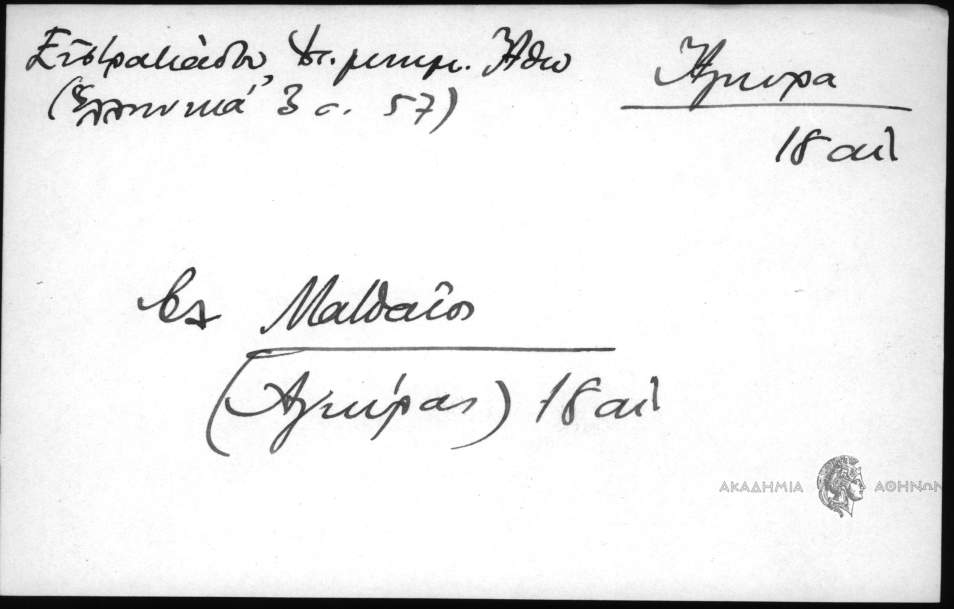 Εὐστρατιάδου Ἐπ. μνημ. Ἄθω
(Ἑλληνικά 3 σ. 57)
Ἄγκυρα
18 αἰ
Μαθαῖος
(Ἀγκύρας) 18 αἰ
ΑΚΑΔΗΜΙΑ ΑΘΗΝΩΝ